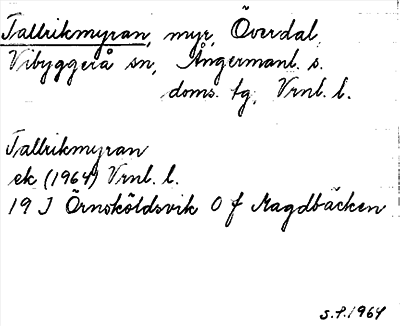 Tallrikmyran, myr, Överdal,
Vibyggerå sn, Ångermanl. s.
doms. tg, Vrnl. l.
Tallrikmyran
ek (1964) Vrnl. l.
19 J Örnsköldsvik 0 f Magdbäcken
s. f. 1964